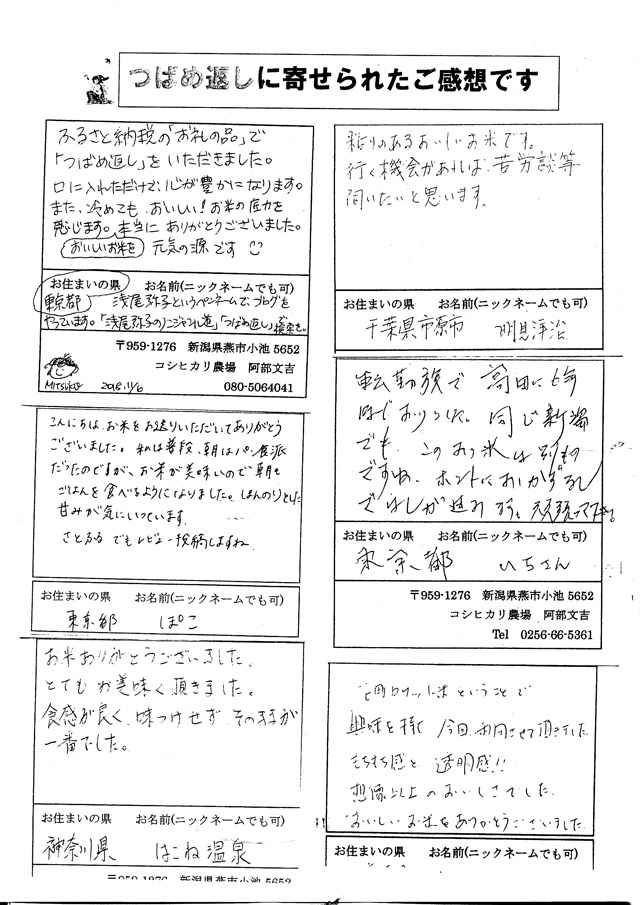 つばめ返しに寄せられたご感想です
ふるさと納税の「お礼の品」で
「つばめ返し」をいただきました。
口に入れただけで、心が豊かになります。
また、冷めても、おいしい！お米の底力を
感じます。本当にありがとうございました。
おいしいお米を 元気の源です
お住まいの県 お名前(ニックネームでも可)
東京都 浅尾弥子というペンネームで、ブログを
やっています。「浅尾弥子のニジャンル道」「つばめ返し」で
MITSUKO 2018.11/6
〒959-1276 新潟県燕市小池 5652
コシヒカリ農場 阿部文吉
080-5064041
粘りのあるおいしいお米です。
行く機会があれば、苦労談等
伺いたいと思います。
お住まいの県 お名前(ニックネームでも可)
千葉県市原市
こんにちは、お米をお送りいただいてありがとう
ございました。私は普段、朝はパン食派
だったのですが、お米が美味いので朝も
ごはんを食べるようになりました。ほんのりとした
甘みが気にいっています。
さとふるでもレビュー投稿しますね
お住まいの県 お名前(ニックネームでも可)
東京都 ぽこ
転勤族で 高田に
同じ新潟
でも、このお米は別物
ですね。ホントにおかずなし
ではしが進みます。頑張って下さい。
お住まいの県 お名前(ニックネームでも可)
東京都 いちさん
〒959-1276 新潟県燕市小池 5652
コシヒカリ農場 阿部文吉
Tel 0256-66-5361
お米ありがとうございました。
とてもお美味く頂きました。
食感が良く、味つけせず、そのままが
一番でした。
お住まいの県 お名前(ニックネームでも可)
神奈川県 はこね温泉
〒959-1276 新潟県燕市小池 5652
ということで
興味を持ち 今回、利用させて頂きました
もちもち感と 透明感!!
想像以上のおいしさでした
おいしいお米をありがとうございました
お住まいの県 お名前(ニックネームでも可)